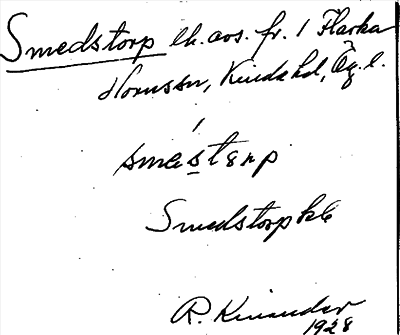 Smedstorp lh. avs. fr. 1 Flarka
Horn ssn, Kinda hd, Ög. l.
smastɛrp
Smedstorp
R. Kinander
1928